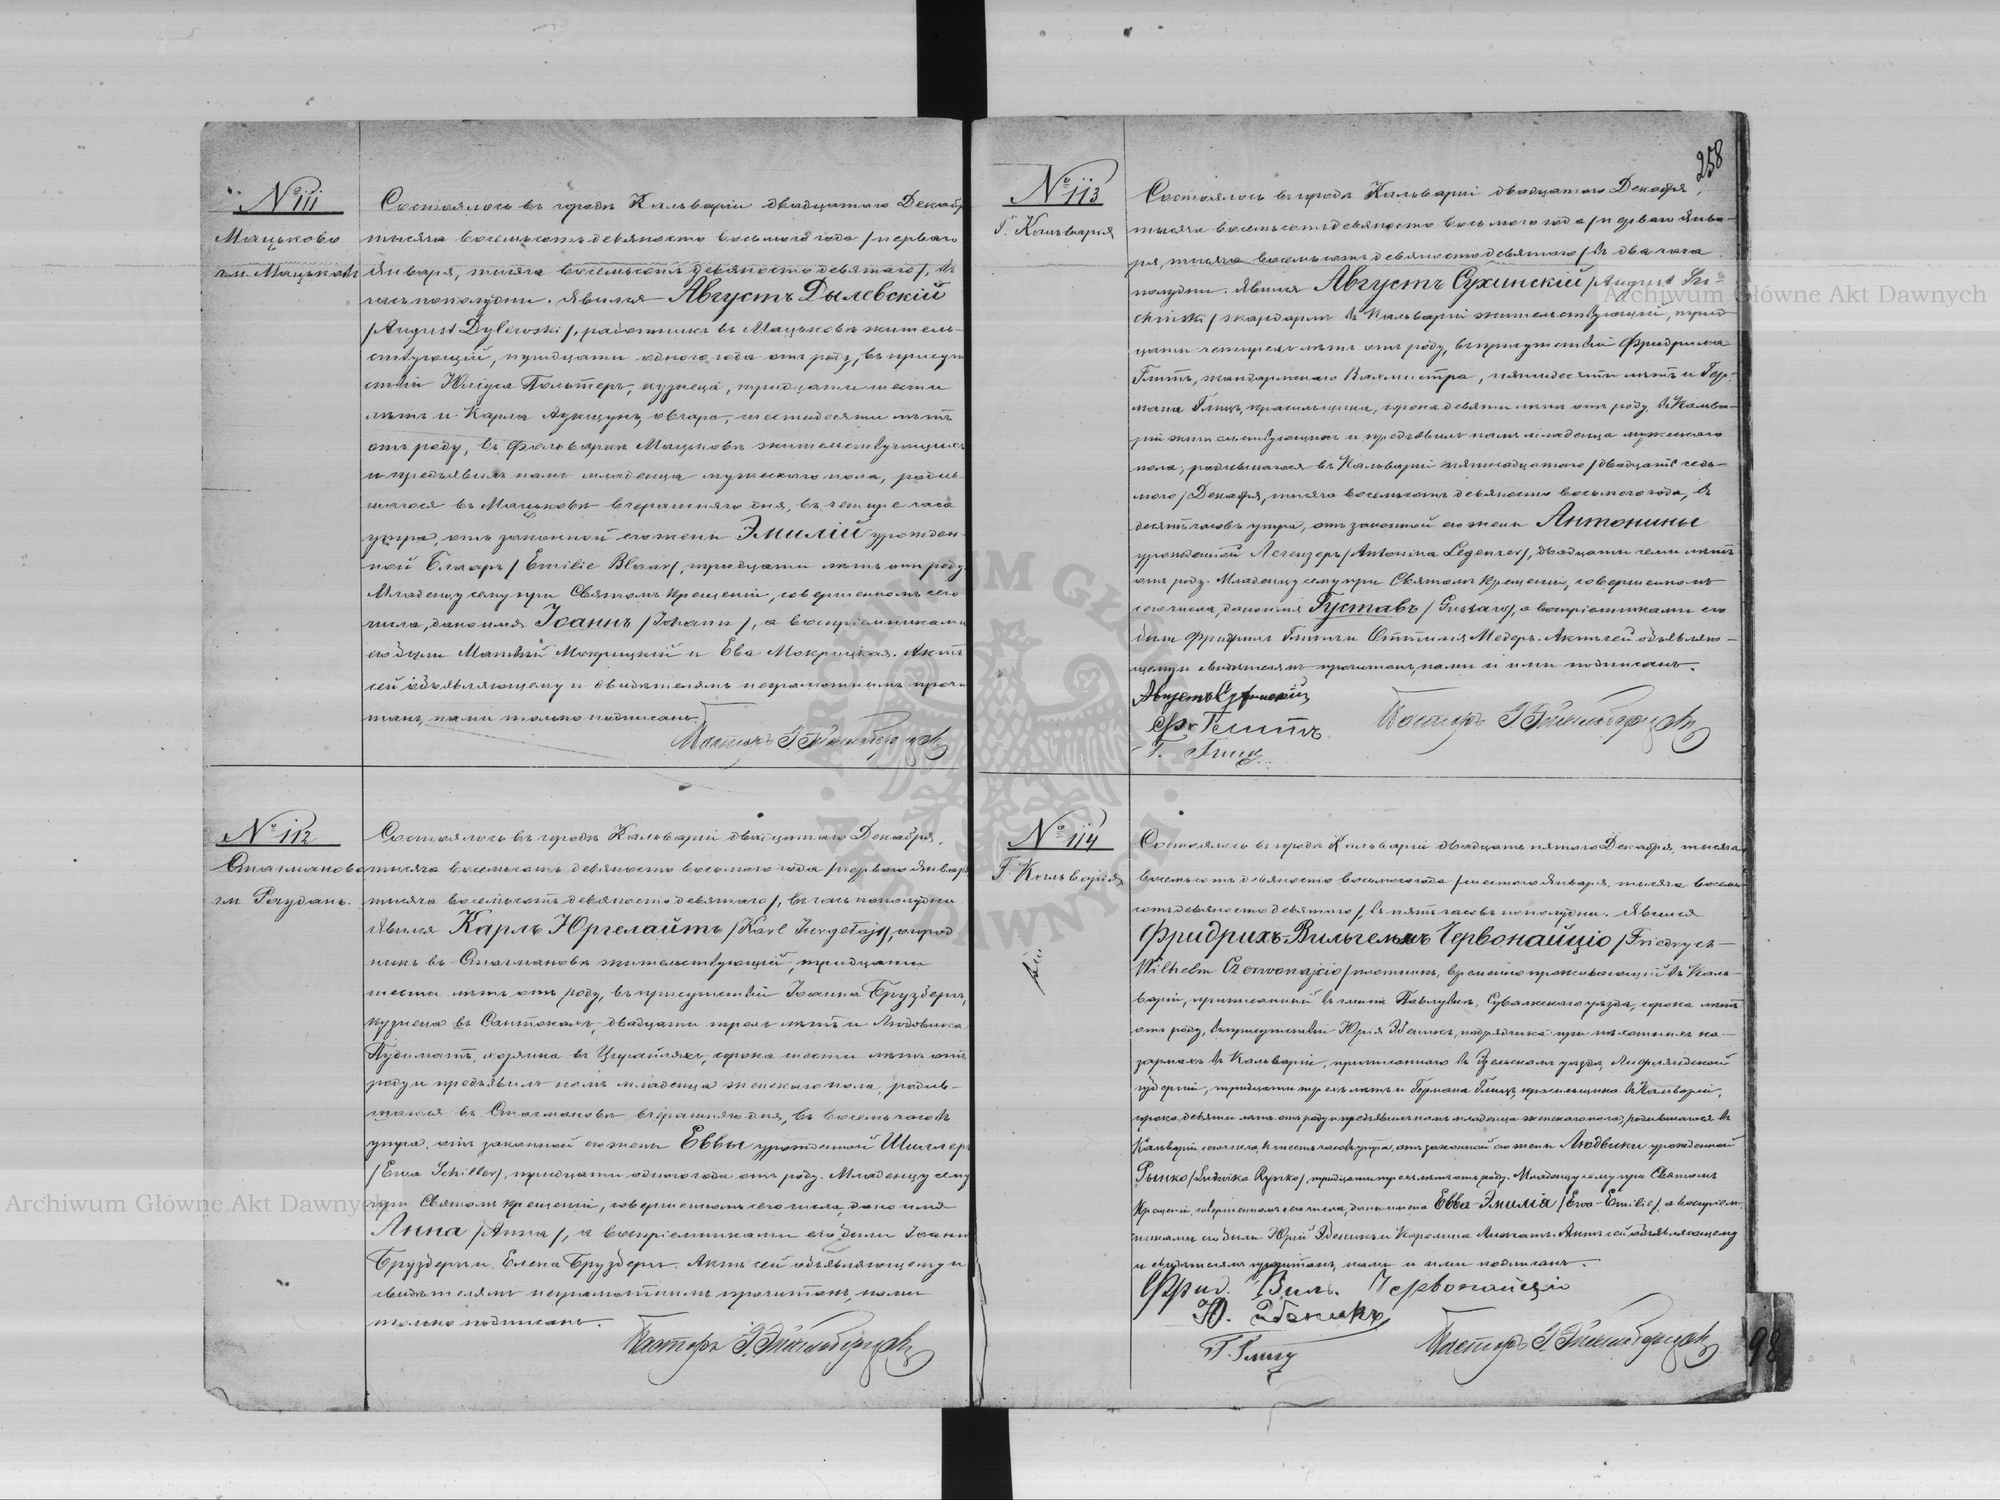 № 111
Мацьково
гм. Мацьково
Состоялось въ городѣ Кальваріи двадцатаго Декабря
тысяча восемьсотъ девяносто восьмого года /перваго
Января, тысяча восемьсотъ девяносто девятаго/, въ
часъ пополудни. Явился Августъ Дылевскій
/August Dylewski/, работникъ въ Мацьковѣ житель-
ствующій, тридцати одного года отъ роду, въ присут
ствіи Юліуса Польтеръ, кузнеца, тридцати шести
лѣтъ и Карла овчара, шестидесяти лѣтъ
отъ роду, въ фольваркѣ Мацьковѣ жительствующихъ
и предъявилъ намъ младенца мужескаго пола, родив-
шагося въ Мацьковѣ вчерашняго дня, въ четыре часа
утра, отъ законной его жены Эмиліи урожден-
ной Блааръ /Emilie Blaar/, тридцати лѣтъ отъ роду.
Младенцу сему при Святомъ Крещеніи, совершенномъ сего
числа, дано имя Іоаннъ /Johann/, а воспріемниками
его были Матвѣй Мокрицкій и Ева Мокрицкая. Актъ
сей объявляющему и свидѣтелямъ неграмотнымъ прочи
танъ, нами только подписанъ.
Пасторъ
№ 112
Стагманово
гм Раудань.
Состоялось въ городѣ Кальваріи двадцатаго Декабря,
тысяча восемьсотъ девяносто восьмого года /перваго Января
тысяча восемьсотъ девяносто девятаго/, въ часъ пополудни
Явился Карлъ Юргелайтъ /Karl Jurgelajt/, огород
никъ въ Стагмановѣ жительствующій, тридцати
шести лѣтъ отъ роду, въ присутствіи Іоанна Бруздеръ,
кузнеца въ двадцати трехъ лѣтъ и Людовика
хозяина въ сорока шести лѣтъ отъ
роду и предъявилъ намъ младенца женскаго пола, родив-
шагося въ Стагмановѣ вчерашняго дня, въ восемь часовъ
утра, отъ законной его жены Еввы урожденной Шиллеръ
/Ewa Schiller/, тридцати одного года отъ роду. Младенцу сему
при Святомъ Крещеніи, совершенномъ сего числа, дано имя
Анна /Anna/, а воспріемниками его были Іоаннъ
Бруздеръ и Елена Бруздеръ. Актъ сей объявляющему и
свидѣтелямъ неграмотнымъ прочитанъ, нами
только подписанъ.
Пасторъ
258
№ 113
Г. Кальварія
Состоялось въ городѣ Кальваріи двадцатаго Декабря,
тысяча восемьсотъ девяносто восьмого года /перваго Янва-
ря, тысяча восемьсотъ девяносто девятаго/ въ два часа
полудни. Явился Августъ Сухинскій /August Su-
chinski/ жандармъ въ Кальваріи жительствующій, трид
цати четырехъ лѣтъ отъ роду, въ присутствіи Фридриха
жандармскаго Вахмистра, пятидесяти лѣтъ и Гер-
мана Глицъ, красильщика, сорока девяти лѣтъ отъ роду, въ Кальва-
ріи жительствующихъ и предъявилъ намъ младенца мужескаго
пола, родившагося въ Кальваріи пятнадцатаго /двадцать седь-
мого/ Декабря, тысяча восемьсотъ девяносто восьмого года, въ
десять часовъ утра, отъ законной его жены Антонины
урожденной Легензеръ /Antonina Legenzer/, двадцати семи лѣтъ
отъ роду. Младенцу сему при Святомъ Крещеніи, совершенномъ
сего числа, дано имя Густавъ /Gustaw/, а воспріемниками его
были Фридрихъ и Оттилія Медеръ. Актъ сей объявляю-
щему и свидѣтелямъ прочитанъ, нами и ими подписанъ.
Августъ Сухинскій
Г. Глицъ
Пасторъ
№ 114
Г. Кальварія
Состоялось въ городѣ Кальваріи двадцать пятаго Декабря, тысяча
восемьсотъ девяносто восьмого года /шестого Января, тысяча восемь
сотъ девяносто девятаго/, въ пять часовъ пополудни. Явился
Фридрихъ-Вильгельмъ Червонайціо /Friedrych-
Wilhelm Czerwonajcio/ плотникъ, временно проживающій въ Каль-
варіи, приписанный къ гминѣ Павлувкѣ, Сувалкскаго уѣзда, сорока лѣтъ
отъ роду, въ присутствіи Юрія Эбеникъ, подрядчика при пѣхотныхъ ка-
зармахъ въ Кальваріи, приписаннаго въ уѣздѣ, Лифляндской
губерніи, тридцати трехъ лѣтъ и Германа Глицъ, красильщика въ Кальваріи,
сорока девяти лѣтъ отъ роду и предъявилъ намъ младенца женскаго пола, родившагося въ
Кальваріи, сего числа, въ шесть часовъ утра, отъ законной его жены Людвики урожденной
Рынко /Ludwika Rynko/, тридцати трехъ лѣтъ отъ роду. Младенцу сему при Святомъ
Крещеніи, совершенномъ сего числа, даны имена Евва-Эмилія /Ewa-Emilie/, а воспріем
никами его были Юрій Эбеникъ и Каролина Актъ сей объявляющему
и свидѣтелямъ прочитанъ, нами и ими подписанъ.
Фрид. Вил. Червонайціо
Ю. Эбеникъ
Г. Глицъ
Пасторъ
98
Archiwum Główne Akt Dawnych
Archiwum Główne Akt Dawnych
ARCHIWUM GŁÓWNE AKT DAWNYCH